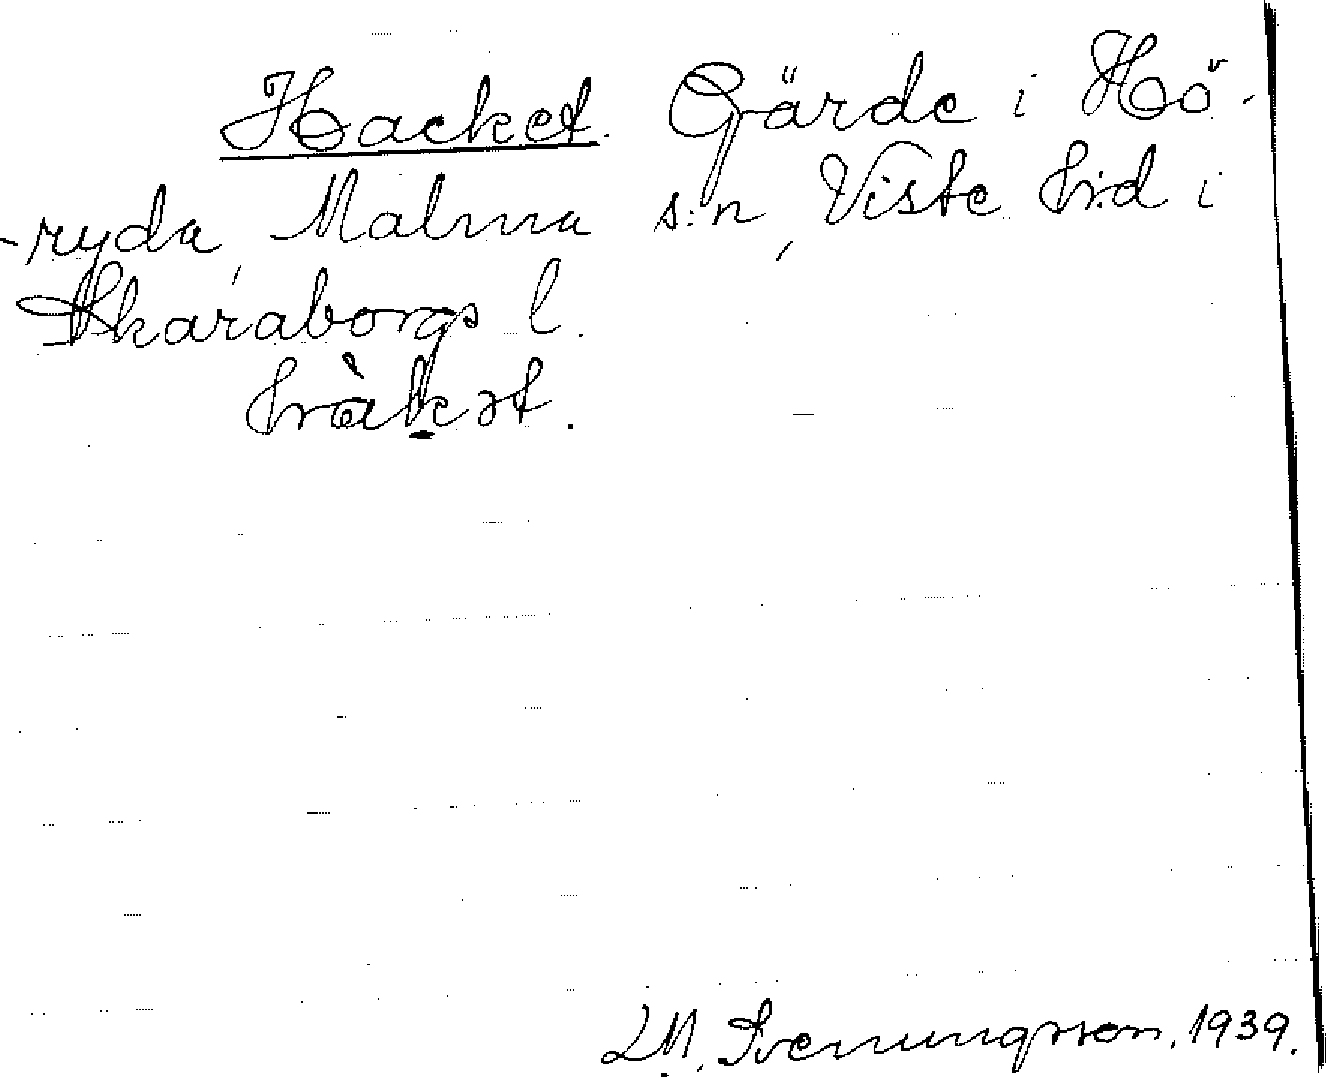 Hacket. Gärde i Hö-
-ryda, Malma s:n, Viste hrd i
Skaraborgs l.
L M, Svenungsson, 1939.